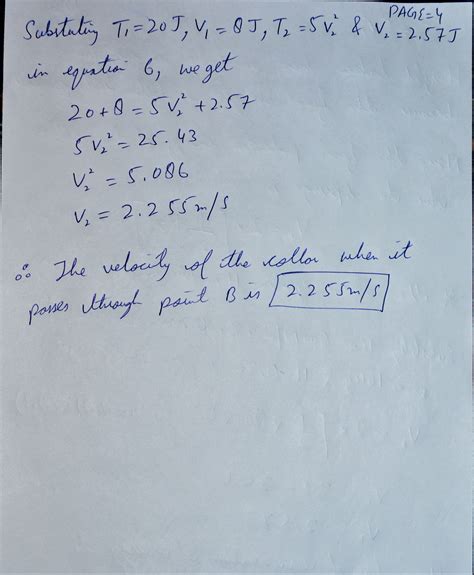 PAGE=4
Substuting T₁=20J, V₁=8J, T₂=5V₂² & V₂=2.57J
in equation 6, we get
20+8=5V₂²+2.57
5V₂²=25.43
V₂²=5.086
V₂=2.255m/s
∴ The velocity of the collar when it
passes through point B is 2.255m/s